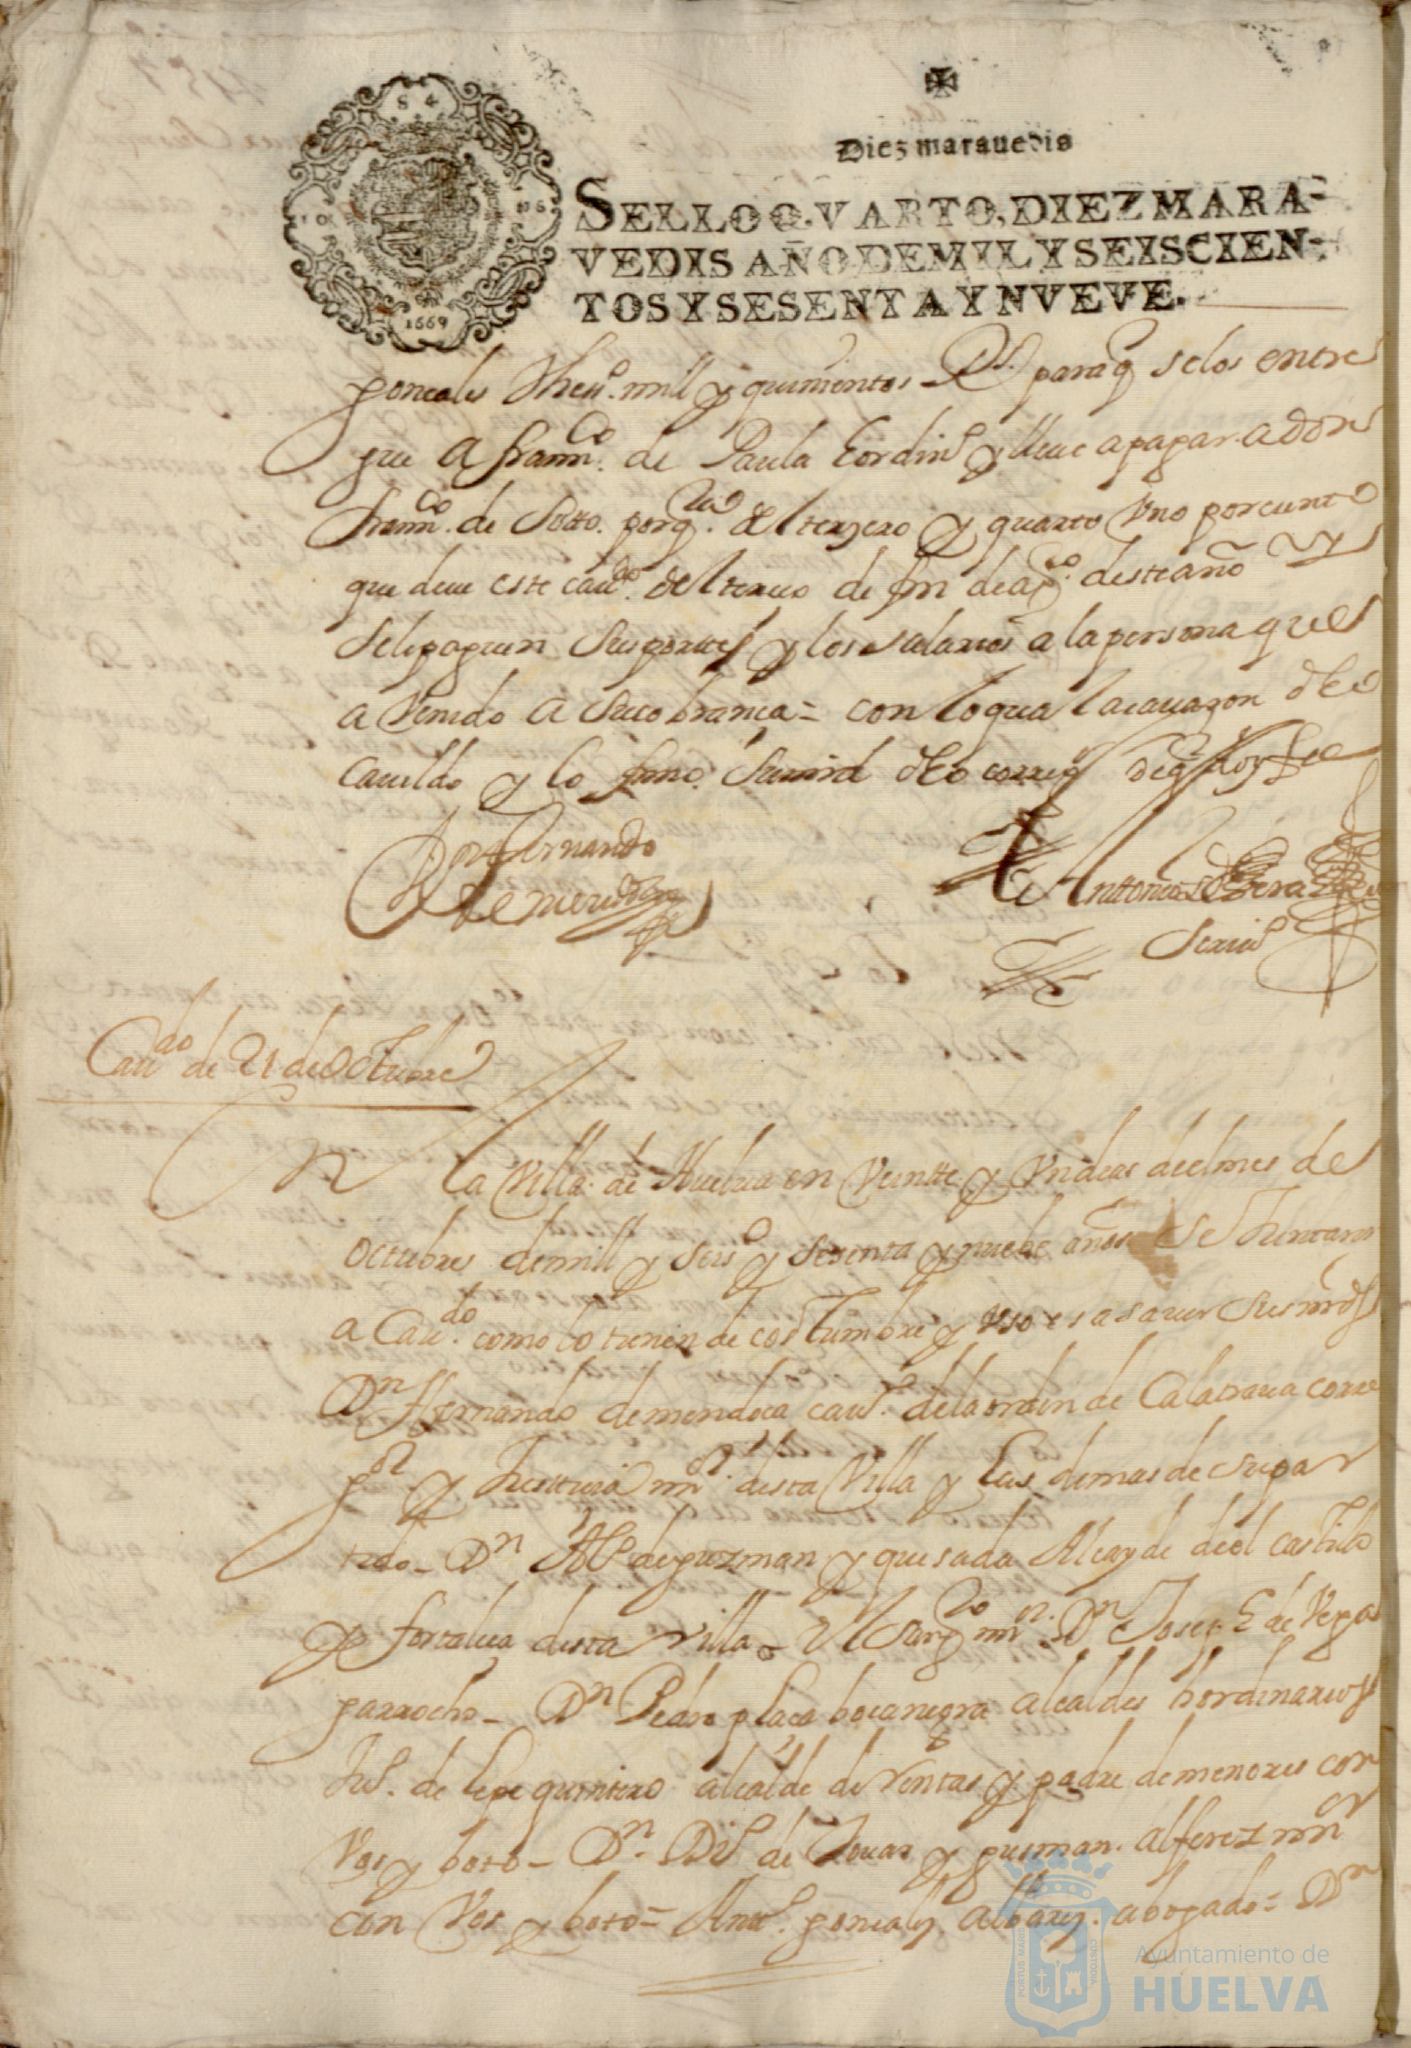 S 4
1669
Diez marauedis
SELLO QVARTO, DIEZ MARA-
VEDIS AÑO DE MIL Y SEISCIEN-
TOS Y SESENTA Y NVEVE.
goncales mill y quinientos Rs. para q se los entre
gue A frannco. de Paula y lleue a pagar a don
frannco. de Sotto. del terzero y quarto Vno por cunto
que deue este cauдo. del tercio de fin de ago. deste año
se le paguen sus portes y los salarios a la persona que
a Venido A su cobranca = con lo qual
cauildo y lo firmo Su mrd correg de q doy fee
Don Fernando
de mendoza
Anttonio
Scriu
Caudo de 21 de Octubre
En la Villa de Huelua en Veintte y Vn dias del mes de
Octubre de mill y seiso y sesenta y nuebe años Se Juntaron
a Caudo. como lo tienen de costumbre y Vso es a sauer Sus mrds
Dn Fernando de mendoca cauo. de la orden de Calatraua corre
gor y Justicia mor desta Villa y Las demas de su par
tido _ Dn Alo de guzman y quesada Alcayde del Castillo
y fortaleca desta villa _ El Sargto mor. Dn Josepe de Vega
garrocho _ Dn Pedro placa bocanegra alcaldes hordinarios
Juo. de Lepe quintero alcalde de Ventas y padre de menores con
Vos y boto _ Dn. Dio de Touar y gusman. alferez mor
con Vos y boto = Anto. goncales albares. abogado = Dn
PORTUS MARIS
CUSTODIA
Ayuntamiento de
HUELVA